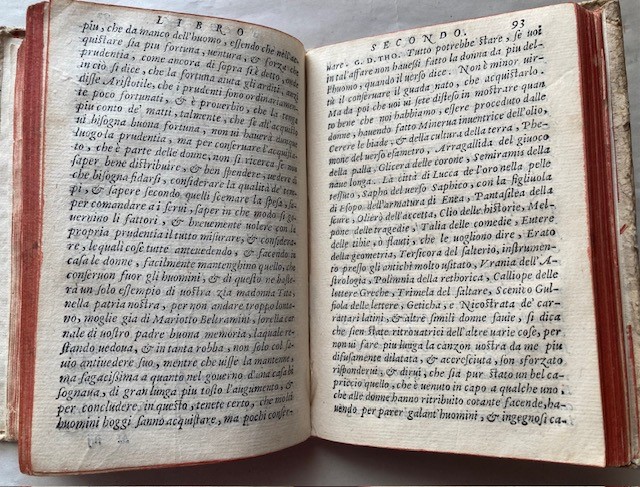 LIBRO
piu, che da manco dell'huomo, essendo che nell'ac-
quistare sia piu fortuna, uentura, & forza che
prudentia, come ancora di sopra si è detto, onde
in ciò si dice, che la fortuna aiuta gli arditi, anzi
disse Aristotile, che i prudenti sono ordinariamen-
te poco fortunati, & è prouerbio, che la tenga
piu conto de' matti, talmente, che se all'acquisto
ui bisogna buona fortuna, non ui hauerà dunque
luogo la prudentia, ma per conseruare l'acquista-
to, che è parte delle donne, non si ricerca se non
saper bene distribuire, & ben spendere, uedere di
che bisogna fidarsi, considerare la qualità de' tem-
pi, & sapere secondo quelli scemare la spesa, sa-
per comandare a i serui, saper in che modo si go-
uernino li fattori, & breuemente uolere con la
propria prudentia il tutto misurare, & considera-
re, le quali cose tutte antiuedendo, & facendo in
casa le donne, facilmente mantenghino quello, che
conseruon fuor gli huomini, & di questo ne basta-
rà un solo esempio di uostra zia madonna Tae,
nella patria nostra, per non andare troppo lonta-
no, moglie gia di Mariotto Beltramini, sorella car-
nale di uostro padre buona memoria, laquale re-
stando uedoua, & in tanta robba, non solo col sa-
uio antiuedere suo, mentre che uisse la mantenne,
ma sagacissima a quanto nel gouerno d'una casa bi
sognaua, di gran lunga piu tosto l'augumentò, &
per concludere in questo, tenete certo, che molti
huomini hoggi sanno acquistare, ma pochi conser-
SECONDO. 93
uare. G. D. THO. Tutto potrebbe stare, se uoi
in tal'affare non hauessi fatto la donna da piu del-
l'huomo, quando il uerso dice. Non è minor uir-
tù il conseruare il guadagnato, che acquistarlo.
Ma da poi che uoi ui sete disteso in mostrare quan
to bene che noi habbiamo, essere proceduto dalle
donne, hauendo fatto Minerua inuentrice dell'olio,
Cerere le biade, & della cultura della terra, Phe-
mone del uerso esametro, Arragallida del giuoco
della palla, Glicera delle corone, Semiramis della
naue longa. La città di Lucca de l'oro nella pelle
tessuto, Sapho del uerso Saphico, con la figliuola
di Esopo dell'armatura di Enea, Pantasilea della
secure, Oliero dell'accetta, Clio delle historie, Mel-
pone delle tragedie, Talia delle comedie, Euterе
delle tibie, ò flauti, che le uogliono dire, Erato
della geometria, Tersicora del salterio, instrumen-
to presso gli antichi molto usitato, Vrania dell'A-
strologia, Polimnia della rethorica, Calliope delle
lettere Greche, Trimela del saltare, Scenico Gul-
fiola delle lettere, Geticha, e Nicostrata de' ca-
rattari latini, & altre simili donne sauie, si dica
che sien state ritrouatrici dell'altre uarie cose, per
non ui fare piu lunga la canzon uostra da me piu
difusamente dilatata, & accresciuta, son sforzato
risponderui, & dirui, che sia pur stato un bel ca-
priccio quello, che è uenuto in capo a qualche uno,
che alle donne hanno ritribuito cotante facende, ha-
uendo per parer galant'huomini, & ingegnosi ca-